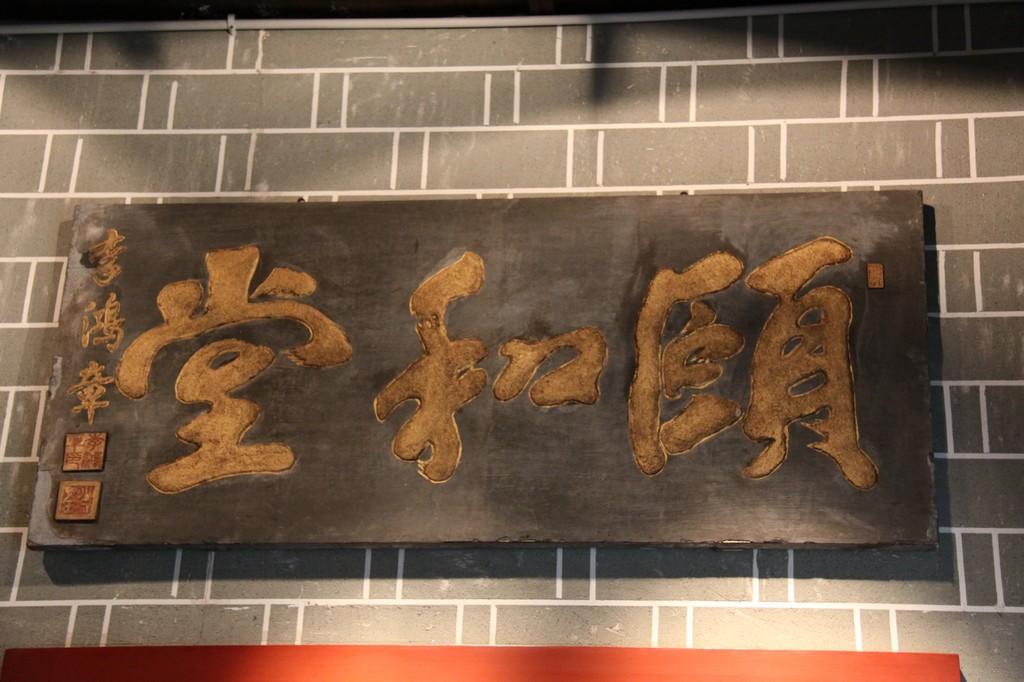 頤和堂
李鴻章